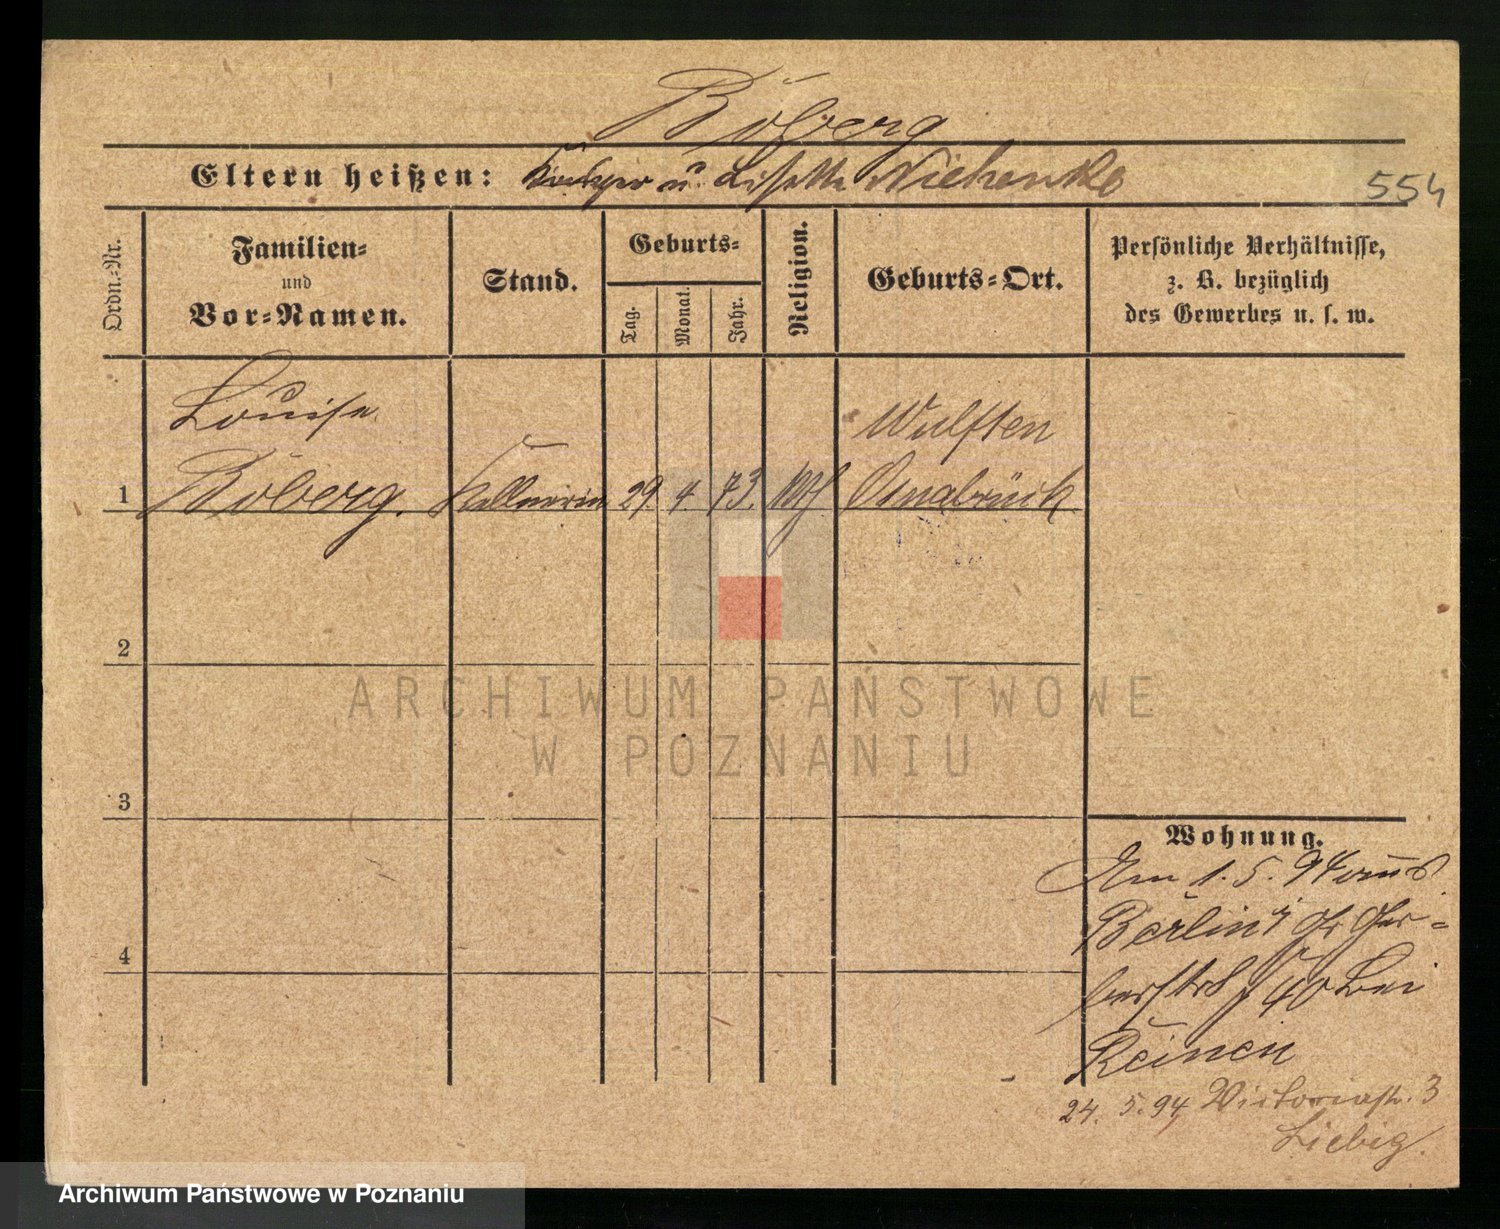 Böberg
Eltern heißen: u. Lisette Niehenke
554
Ordn.-Nr.
Familien-
und
Vor-Namen.
Stand.
Geburts-
Tag.
Monat.
Jahr.
Religion.
Geburts-Ort.
Persönliche Verhältnisse,
z. B. bezüglich
des Gewerbes u. s. w.
Louise
Böberg.
1
Kellnerin
29. 4. 73.
Wulften
Osnabrück
2
3
4
Wohnung.
Am 1. 5. 94 aus
Berlin gr Ger-
berstrß 40 bei
Reinen
24. 5. 94 Victoriastr. 3
Liebig.
ARCHIWUM PAŃSTWOWE
W POZNANIU
Archiwum Państwowe w Poznaniu